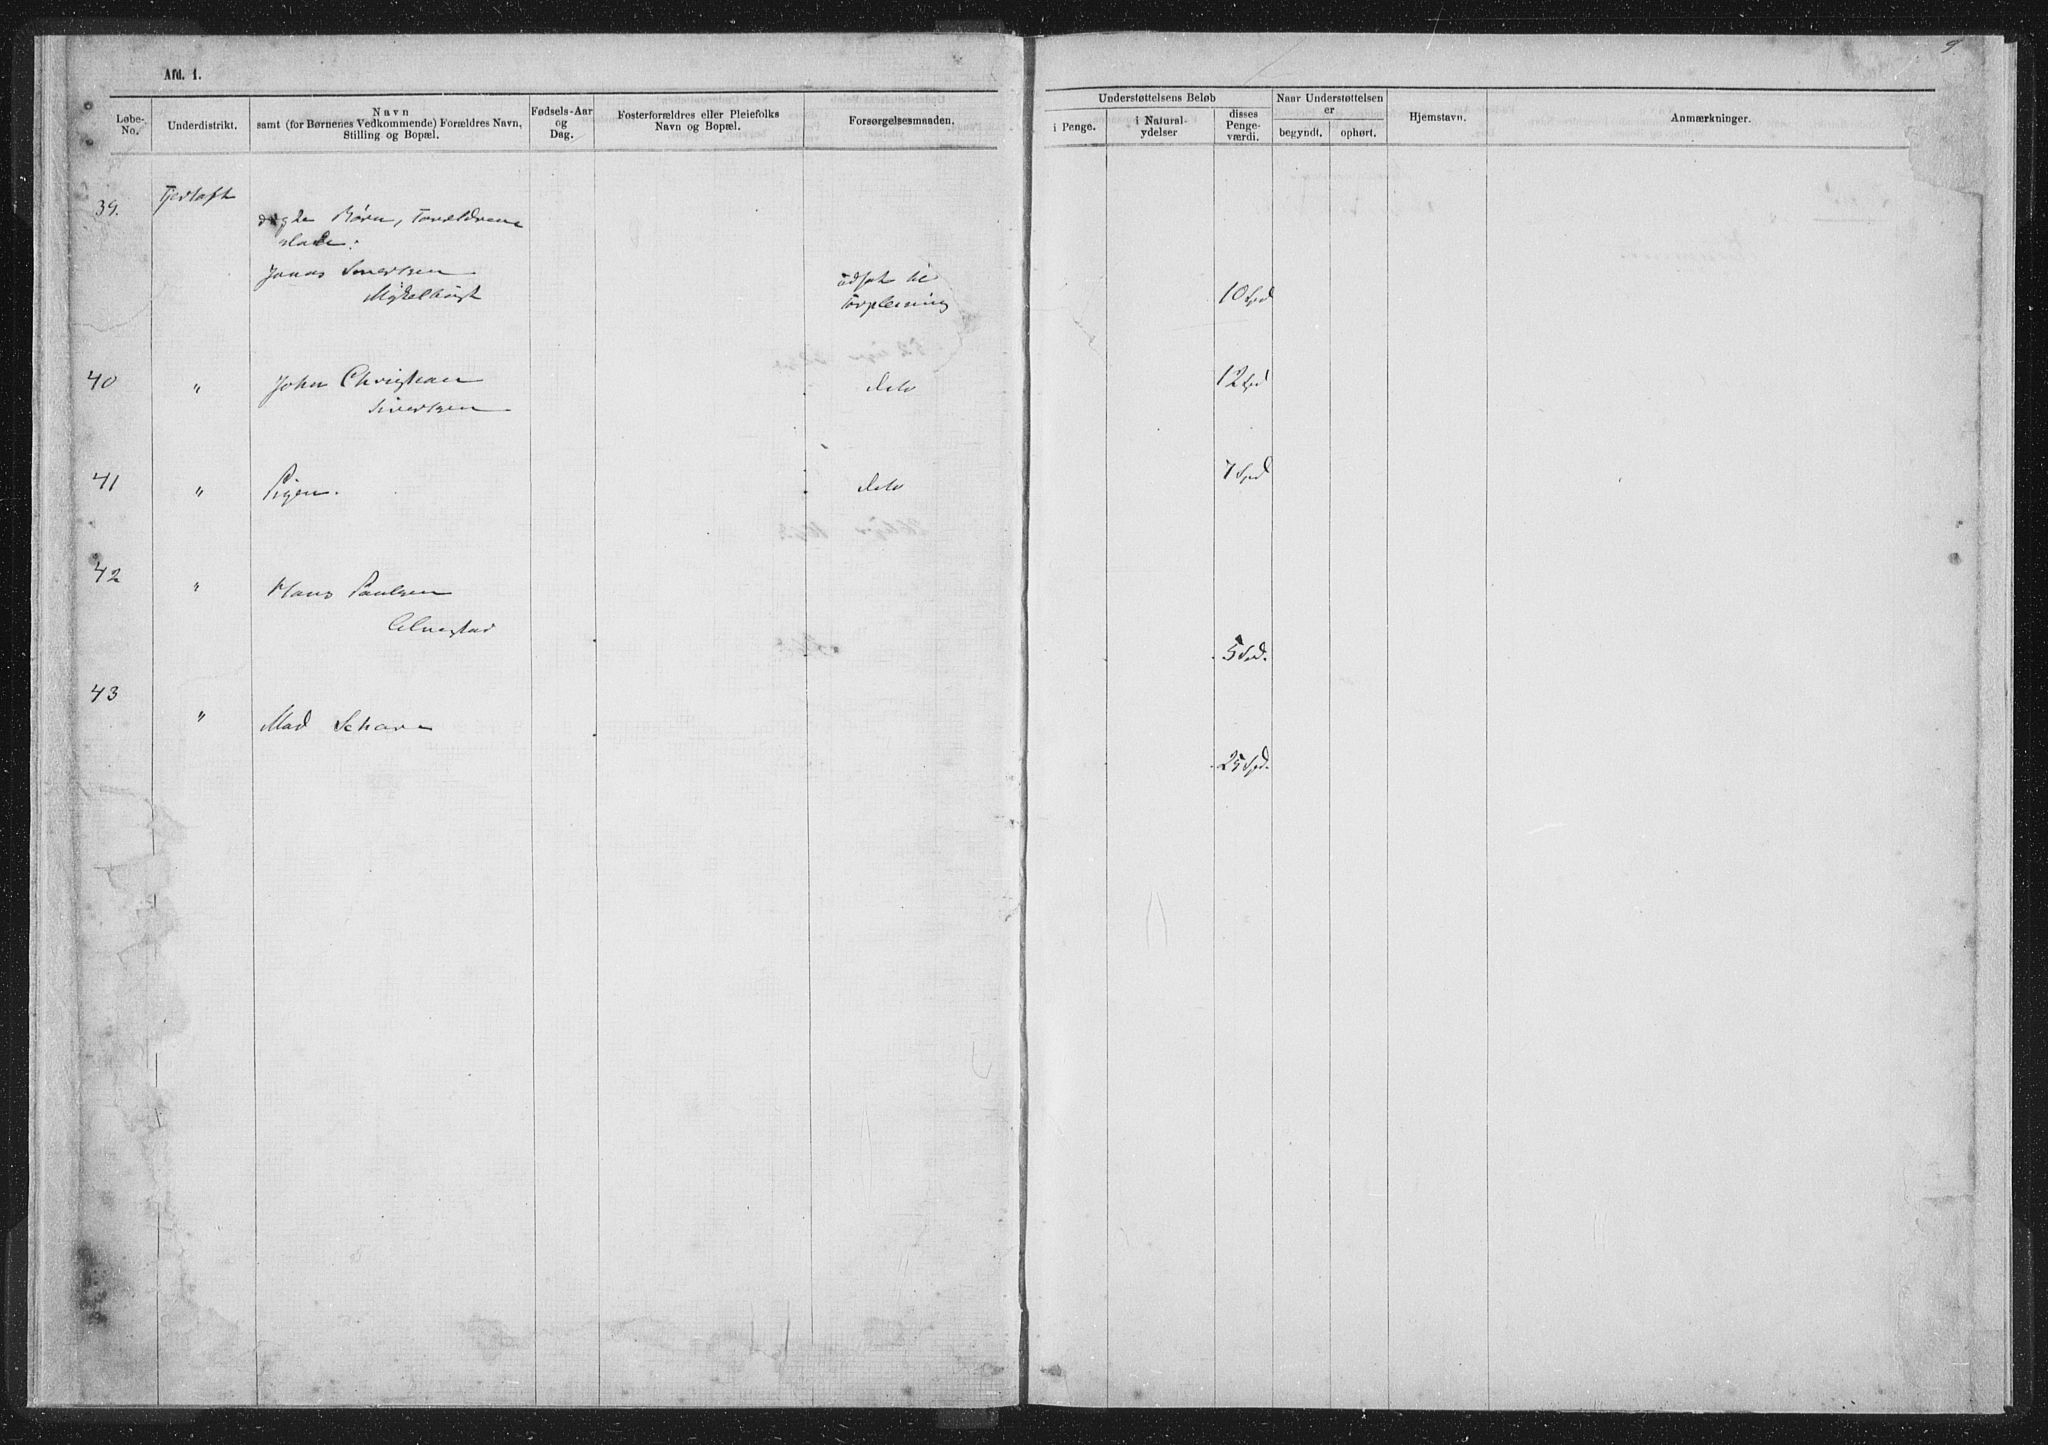 9
Afd. 1.
Løbe-No.
Underdistrikt.
Navn
samt (for Børnenes Vedkommende) Forældres Navn,
Stilling og Bopæl.
Fødsels-Aar
og
Dag.
Fosterforældres eller Pleiefolks
Navn og Bopæl.
Forsørgelsesmaaden.
Understøttelsens Beløb
i Penge.
i Natural-
ydelser
disses
Penge-
værdi.
Naar Understøttelsen
er
begyndt.
ophørt.
Hjemstavn.
Anmærkninger.
39.
Børn, Forældrene
Jonas Sivertsen
udsat til
Forpleining
10 Spd
40 " John Christian detto 12 Spd
Sivertsen
41 " Pigen. detto 7 Spd
42 " Hans Paulsen
5 Spd.
43 " Mad Schar
25 Spd.